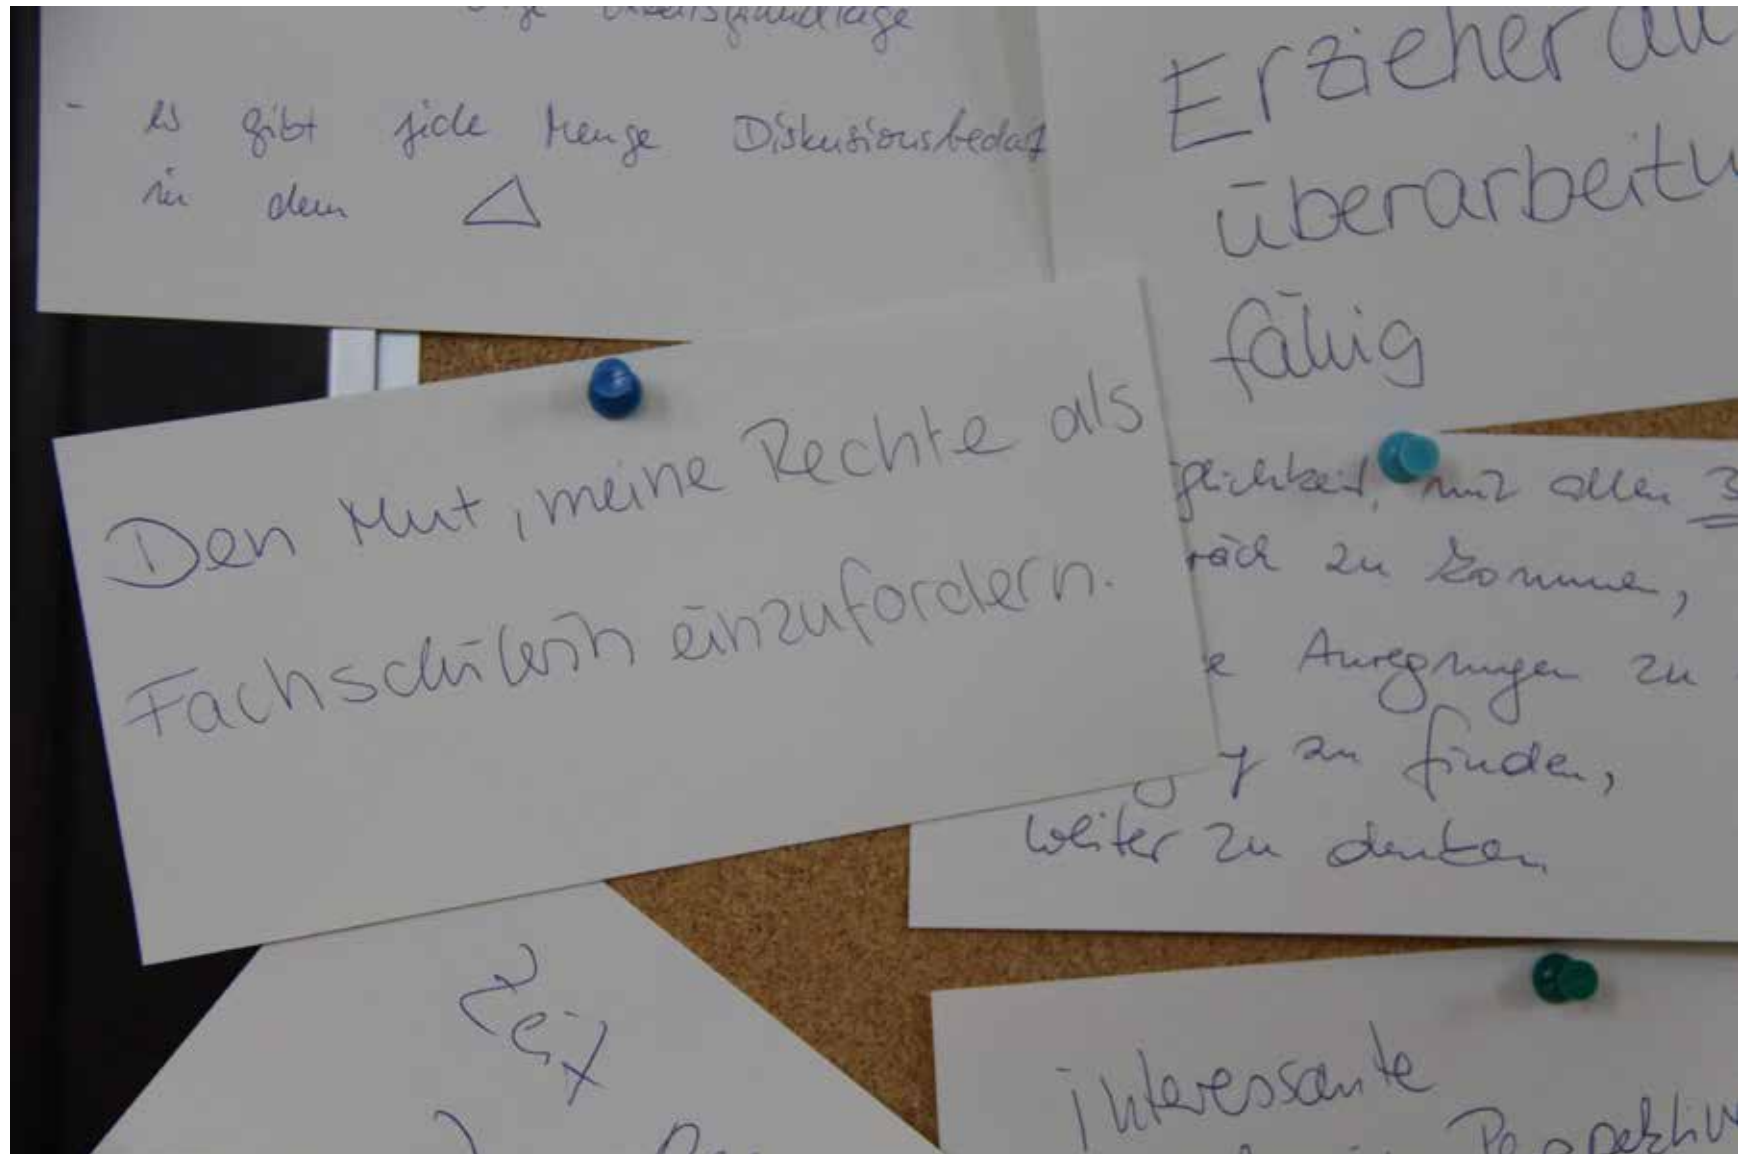 - es gibt jede Menge Diskusionsbedarf
in dem
Erzieher
überarbeitu
fähig
Den Mut, meine Rechte als
Fachschülerin einzufordern.
glichkeit, mit allen 3
räch zu kommen,
e Anregungen zu
zu finden,
weiter zu denken
Zeit
interessante
Perspektiv